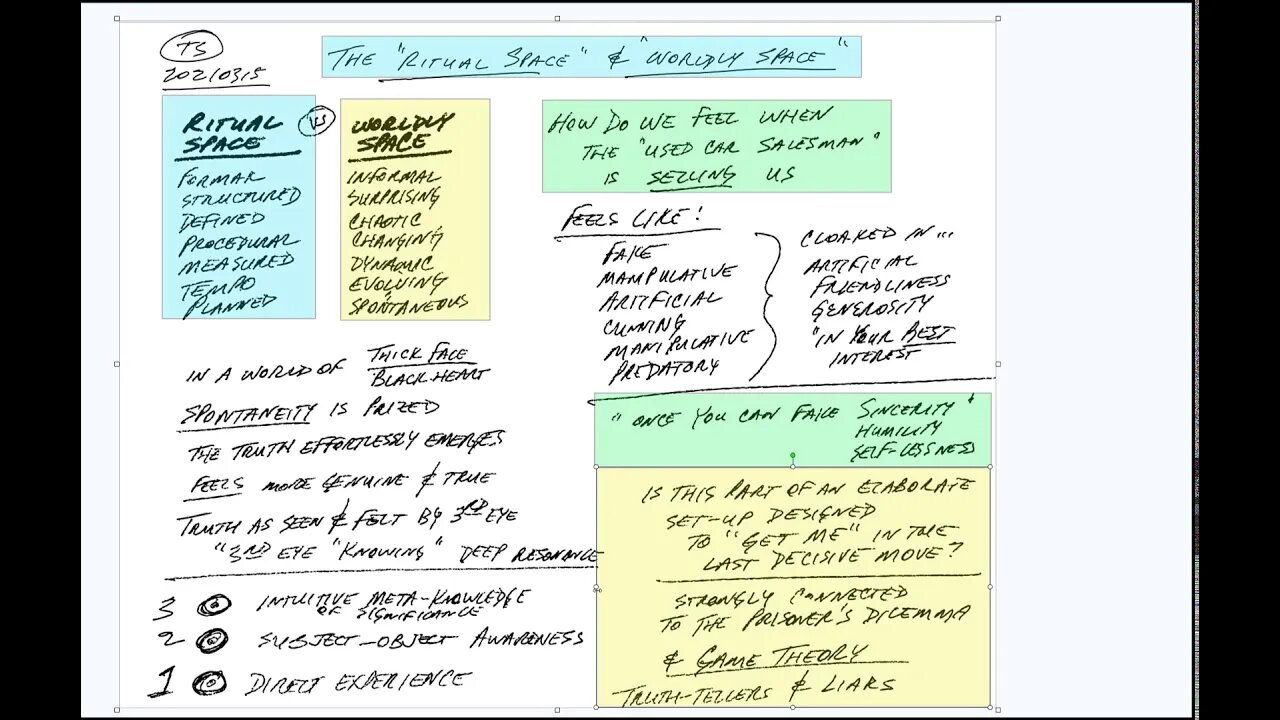 TS
2021/03/15
THE "RITUAL SPACE" & "WORLDLY SPACE"
RITUAL
SPACE
VS
WORLDLY
SPACE
FORMAL
STRUCTURED
DEFINED
PROCEDURAL
MEASURED
TEMPO
PLANNED
INFORMAL
SURPRISING
CHAOTIC
CHANGING
DYNAMIC
EVOLVING
SPONTANEOUS
IN A WORLD OF THICK FACE
BLACK-HEART
SPONTANEITY IS PRIZED
THE TRUTH EFFORTLESSLY EMERGES
FEELS MORE GENUINE & TRUE
TRUTH AS SEEN & FELT BY 3RD EYE
"3RD EYE "KNOWING" DEEP RESONANCE
3 INTUITIVE META-KNOWLEDGE
OF SIGNIFICANCE
2 SUBJECT-OBJECT AWARENESS
1 DIRECT EXPERIENCE
HOW DO WE FEEL WHEN
THE "USED CAR SALESMAN"
IS SELLING US
FEELS LIKE!
FAKE
MANIPULATIVE
ARTIFICIAL
CUNNING
MANIPULATIVE
PREDATORY
CLOAKED IN...
ARTIFICIAL
FRIENDLINESS
GENEROSITY
"IN YOUR BEST
INTEREST
"ONCE YOU CAN FAKE SINCERITY"
HUMILITY
SELF-LESSNESS
IS THIS PART OF AN ELABORATE
SET-UP DESIGNED
TO "GET ME" IN THE
LAST DECISIVE MOVE?
STRONGLY CONNECTED
TO THE PRISONER'S DILEMMA
& GAME THEORY
TRUTH-TELLERS & LIARS